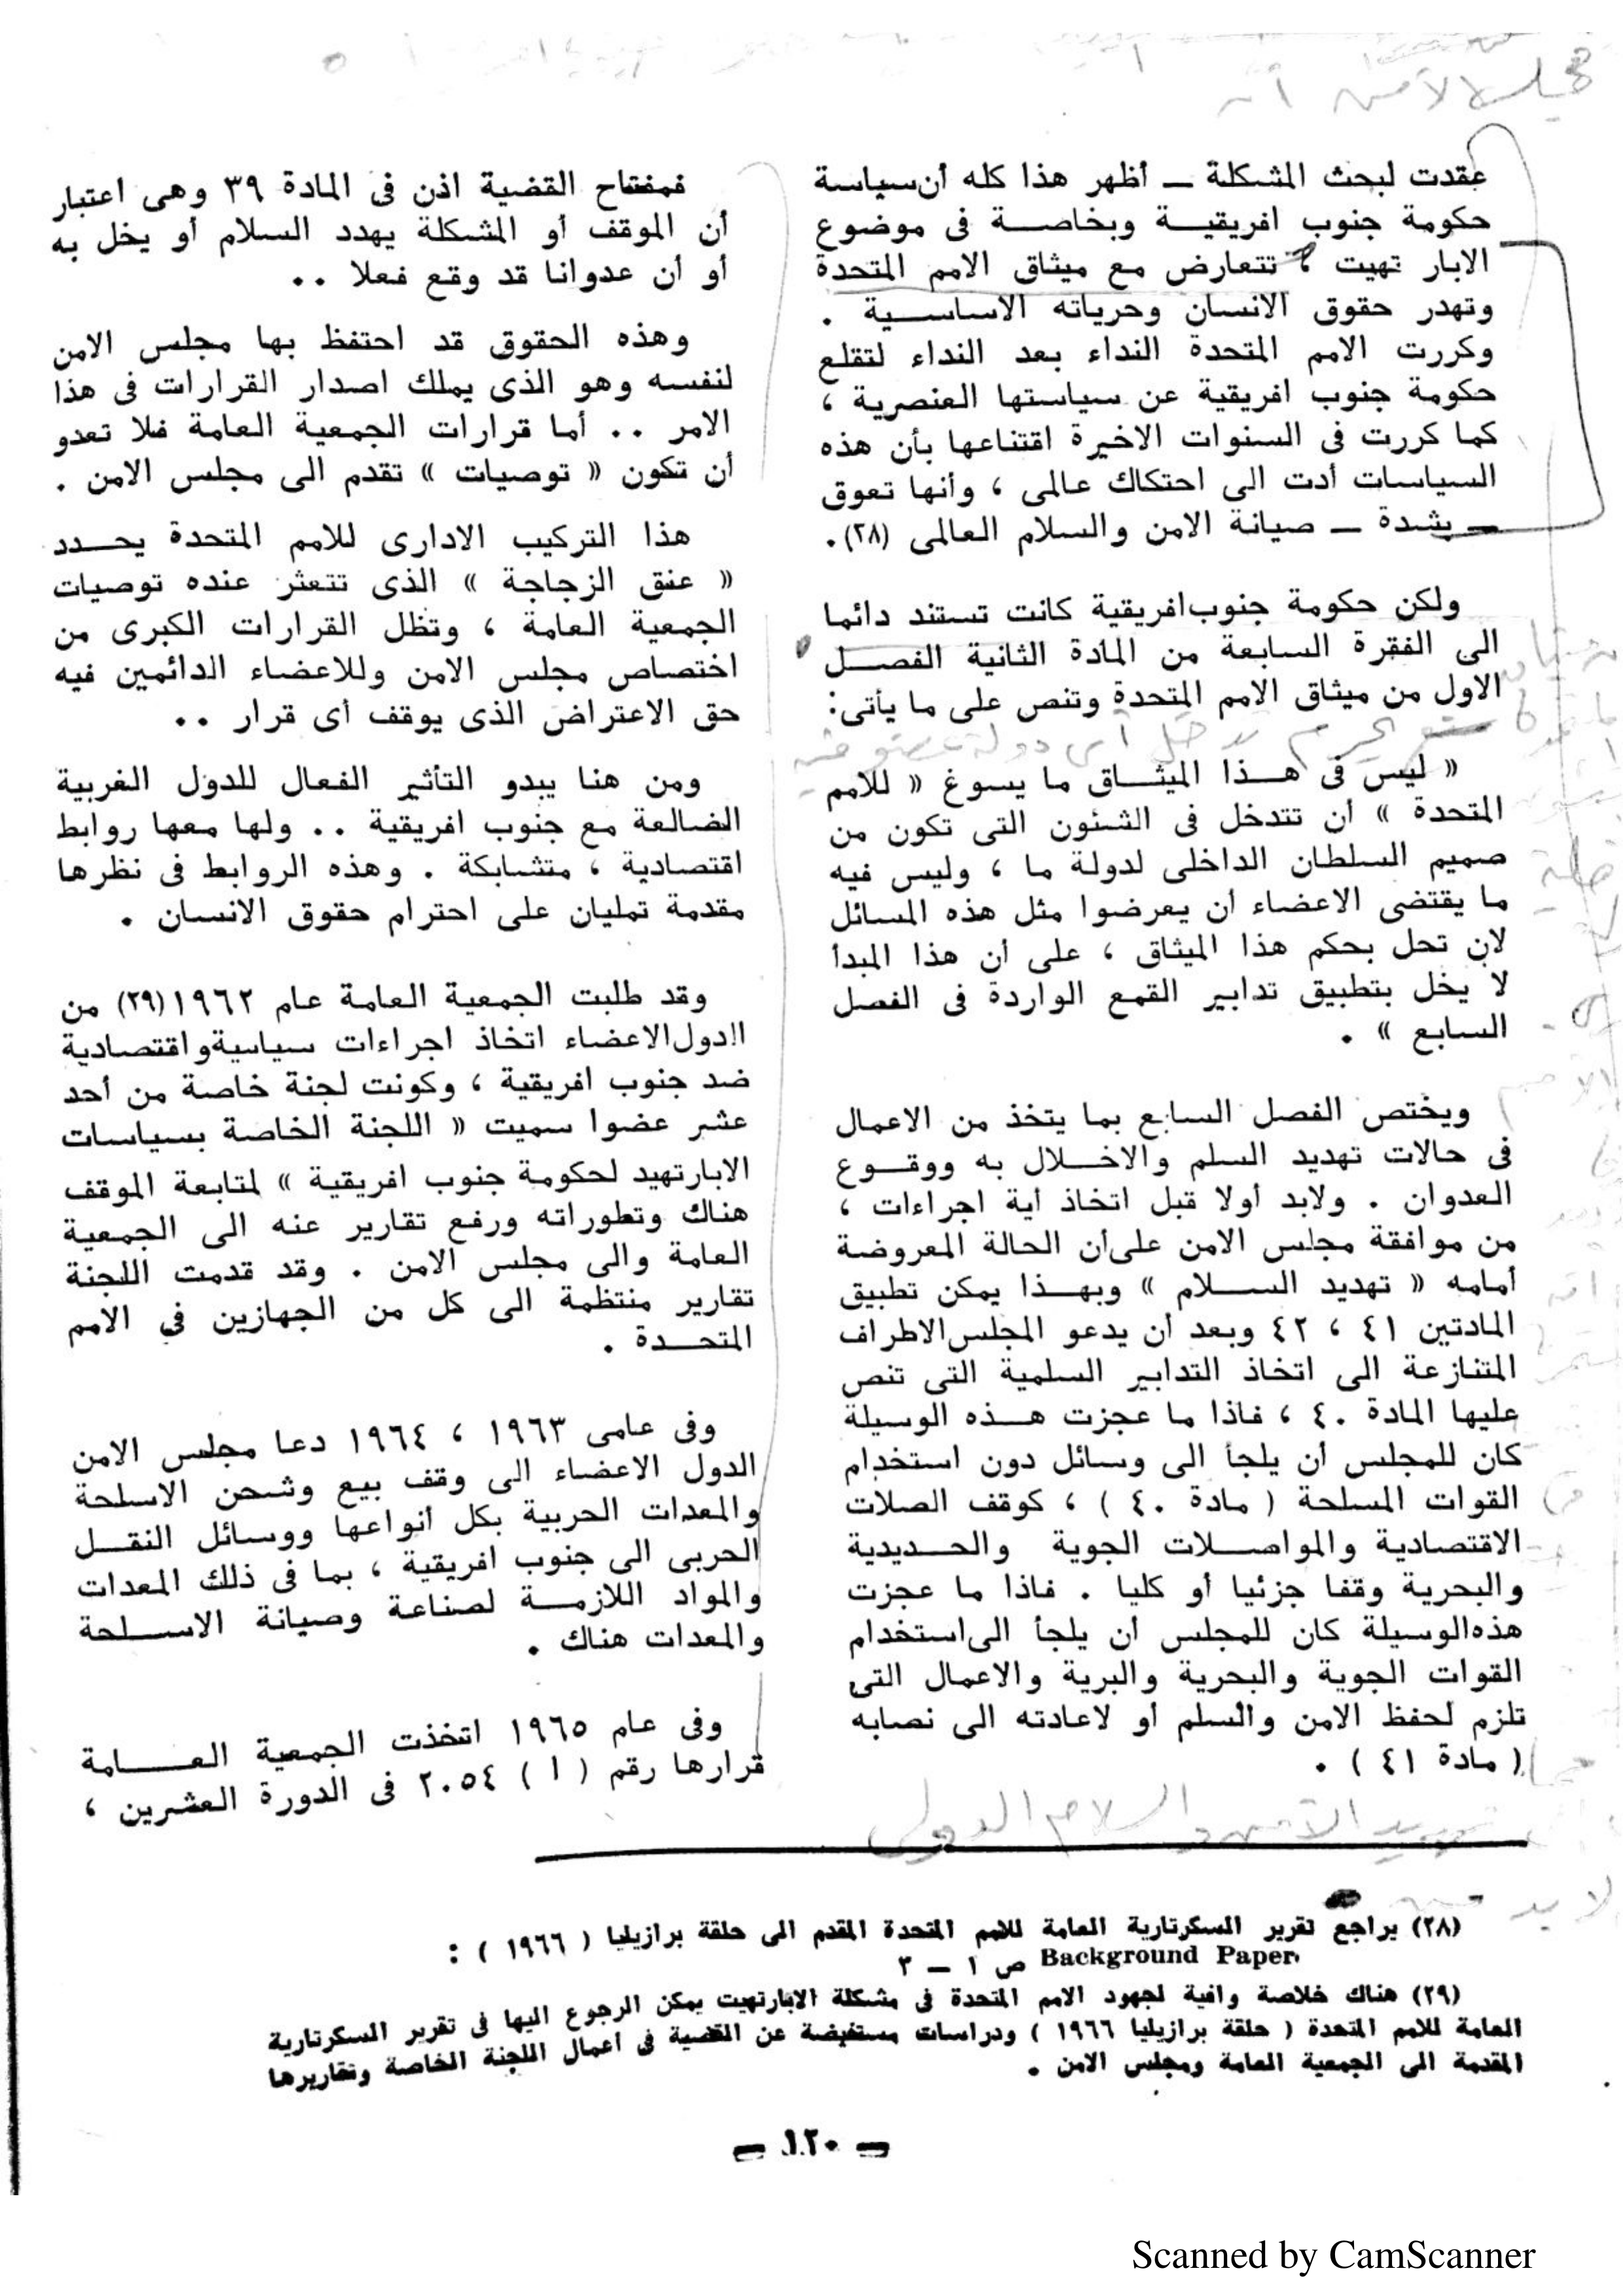 مجلس الأمن أنه
عقدت لبحث المشكلة ــ أظهر هذا كله أن سياسة
حكومة جنوب افريقيــة وبخاصــة فى موضوع
الابار تهيت ، تتعارض مع ميثاق الامم المتحدة
وتهدر حقوق الانسان وحرياته الاساســية .
وكررت الامم المتحدة النداء بعد النداء لتقلع
حكومة جنوب افريقية عن سياستها العنصرية ،
كما كررت فى السنوات الاخيرة اقتناعها بأن هذه
السياسات أدت الى احتكاك عالمى ، وأنها تعوق
ــ بشدة ــ صيانة الامن والسلام العالمى (٢٨).
ولكن حكومة جنوب افريقية كانت تستند دائما
الى الفقرة السابعة من المادة الثانية الفصــل
الاول من ميثاق الامم المتحدة وتنص على ما يأتى:
« ليس فى هــذا الميثــاق ما يسوغ « للامم
المتحدة » أن تتدخل فى الشئون التى تكون من
صميم السلطان الداخلى لدولة ما ، وليس فيه
ما يقتضى الاعضاء أن يعرضوا مثل هذه المسائل
لان تحل بحكم هذا الميثاق ، على أن هذا المبدأ
لا يخل بتطبيق تدابير القمع الواردة فى الفصل
السابع » .
ويختص الفصل السابع بما يتخذ من الاعمال
فى حالات تهديد السلم والاخــلال به ووقــوع
العدوان . ولابد أولا قبل اتخاذ أية اجراءات ،
من موافقة مجلس الامن على أن الحالة المعروضة
أمامه « تهديد الســلام » وبهــذا يمكن تطبيق
المادتين ٤١ ، ٤٢ وبعد أن يدعو المجلس الاطراف
المتنازعة الى اتخاذ التدابير السلمية التى تنص
عليها المادة ٤٠ ، فاذا ما عجزت هــذه الوسيلة
كان للمجلس أن يلجأ الى وسائل دون استخدام
القوات المسلحة ( مادة ٤٠ ) ، كوقف الصلات
الاقتصادية والمواصــلات الجوية والحــديدية
والبحرية وقفا جزئيا أو كليا . فاذا ما عجزت
هذه الوسيلة كان للمجلس أن يلجأ الى استخدام
القوات الجوية والبحرية والبرية والاعمال التى
تلزم لحفظ الامن والسلم أو لاعادته الى نصابه
( مادة ٤١ ) .
فمفتاح القضية اذن فى المادة ٣٩ وهى اعتبار
أن الموقف أو المشكلة يهدد السلام أو يخل به
أو أن عدوانا قد وقع فعلا ..
وهذه الحقوق قد احتفظ بها مجلس الامن
لنفسه وهو الذى يملك اصدار القرارات فى هذا
الامر .. أما قرارات الجمعية العامة فلا تعدو
أن تكون « توصيات » تقدم الى مجلس الامن .
هذا التركيب الادارى للامم المتحدة يحــدد
« عنق الزجاجة » الذى تتعثر عنده توصيات
الجمعية العامة ، وتظل القرارات الكبرى من
اختصاص مجلس الامن وللاعضاء الدائمين فيه
حق الاعتراض الذى يوقف أى قرار ..
ومن هنا يبدو التأثير الفعال للدول الغربية
الضالعة مع جنوب افريقية .. ولها معها روابط
اقتصادية ، متشابكة . وهذه الروابط فى نظرها
مقدمة تمليان على احترام حقوق الانسان .
وقد طلبت الجمعية العامة عام ١٩٦٢(٢٩) من
الدول الاعضاء اتخاذ اجراءات سياسية واقتصادية
ضد جنوب افريقية ، وكونت لجنة خاصة من أحد
عشر عضوا سميت « اللجنة الخاصة بسياسات
الابارتهيد لحكومة جنوب افريقية » لمتابعة الموقف
هناك وتطوراته ورفع تقارير عنه الى الجمعية
العامة والى مجلس الامن . وقد قدمت اللجنة
تقارير منتظمة الى كل من الجهازين في الامم
المتحــدة .
وفى عامى ١٩٦٣ ، ١٩٦٤ دعا مجلس الامن
الدول الاعضاء الى وقف بيع وشحن الاسلحة
والمعدات الحربية بكل أنواعها ووسائل النقــل
الحربى الى جنوب افريقية ، بما فى ذلك المعدات
والمواد اللازمــة لصناعة وصيانة الاســلحة
والمعدات هناك .
وفى عام ١٩٦٥ اتخذت الجمعية العــامة
قرارها رقم ( ا ) ٢٠٥٤ فى الدورة العشرين ،
تهديد الأمن والسلام الدولى
(٢٨) يراجع تقرير السكرتارية العامة للامم المتحدة المقدم الى حلقة برازيليا ( ١٩٦٦ ) :
Background Paper ص ١ ــ ٣
(٢٩) هناك خلاصة وافية لجهود الامم المتحدة فى مشكلة الابارتهيت يمكن الرجوع اليها فى تقرير السكرتارية
العامة للامم المتحدة ( حلقة برازيليا ١٩٦٦ ) ودراسات مستفيضة عن القضية فى أعمال اللجنة الخاصة وتقاريرها
المقدمة الى الجمعية العامة ومجلس الامن .
ــ ١٢٠ ــ
Scanned by CamScanner